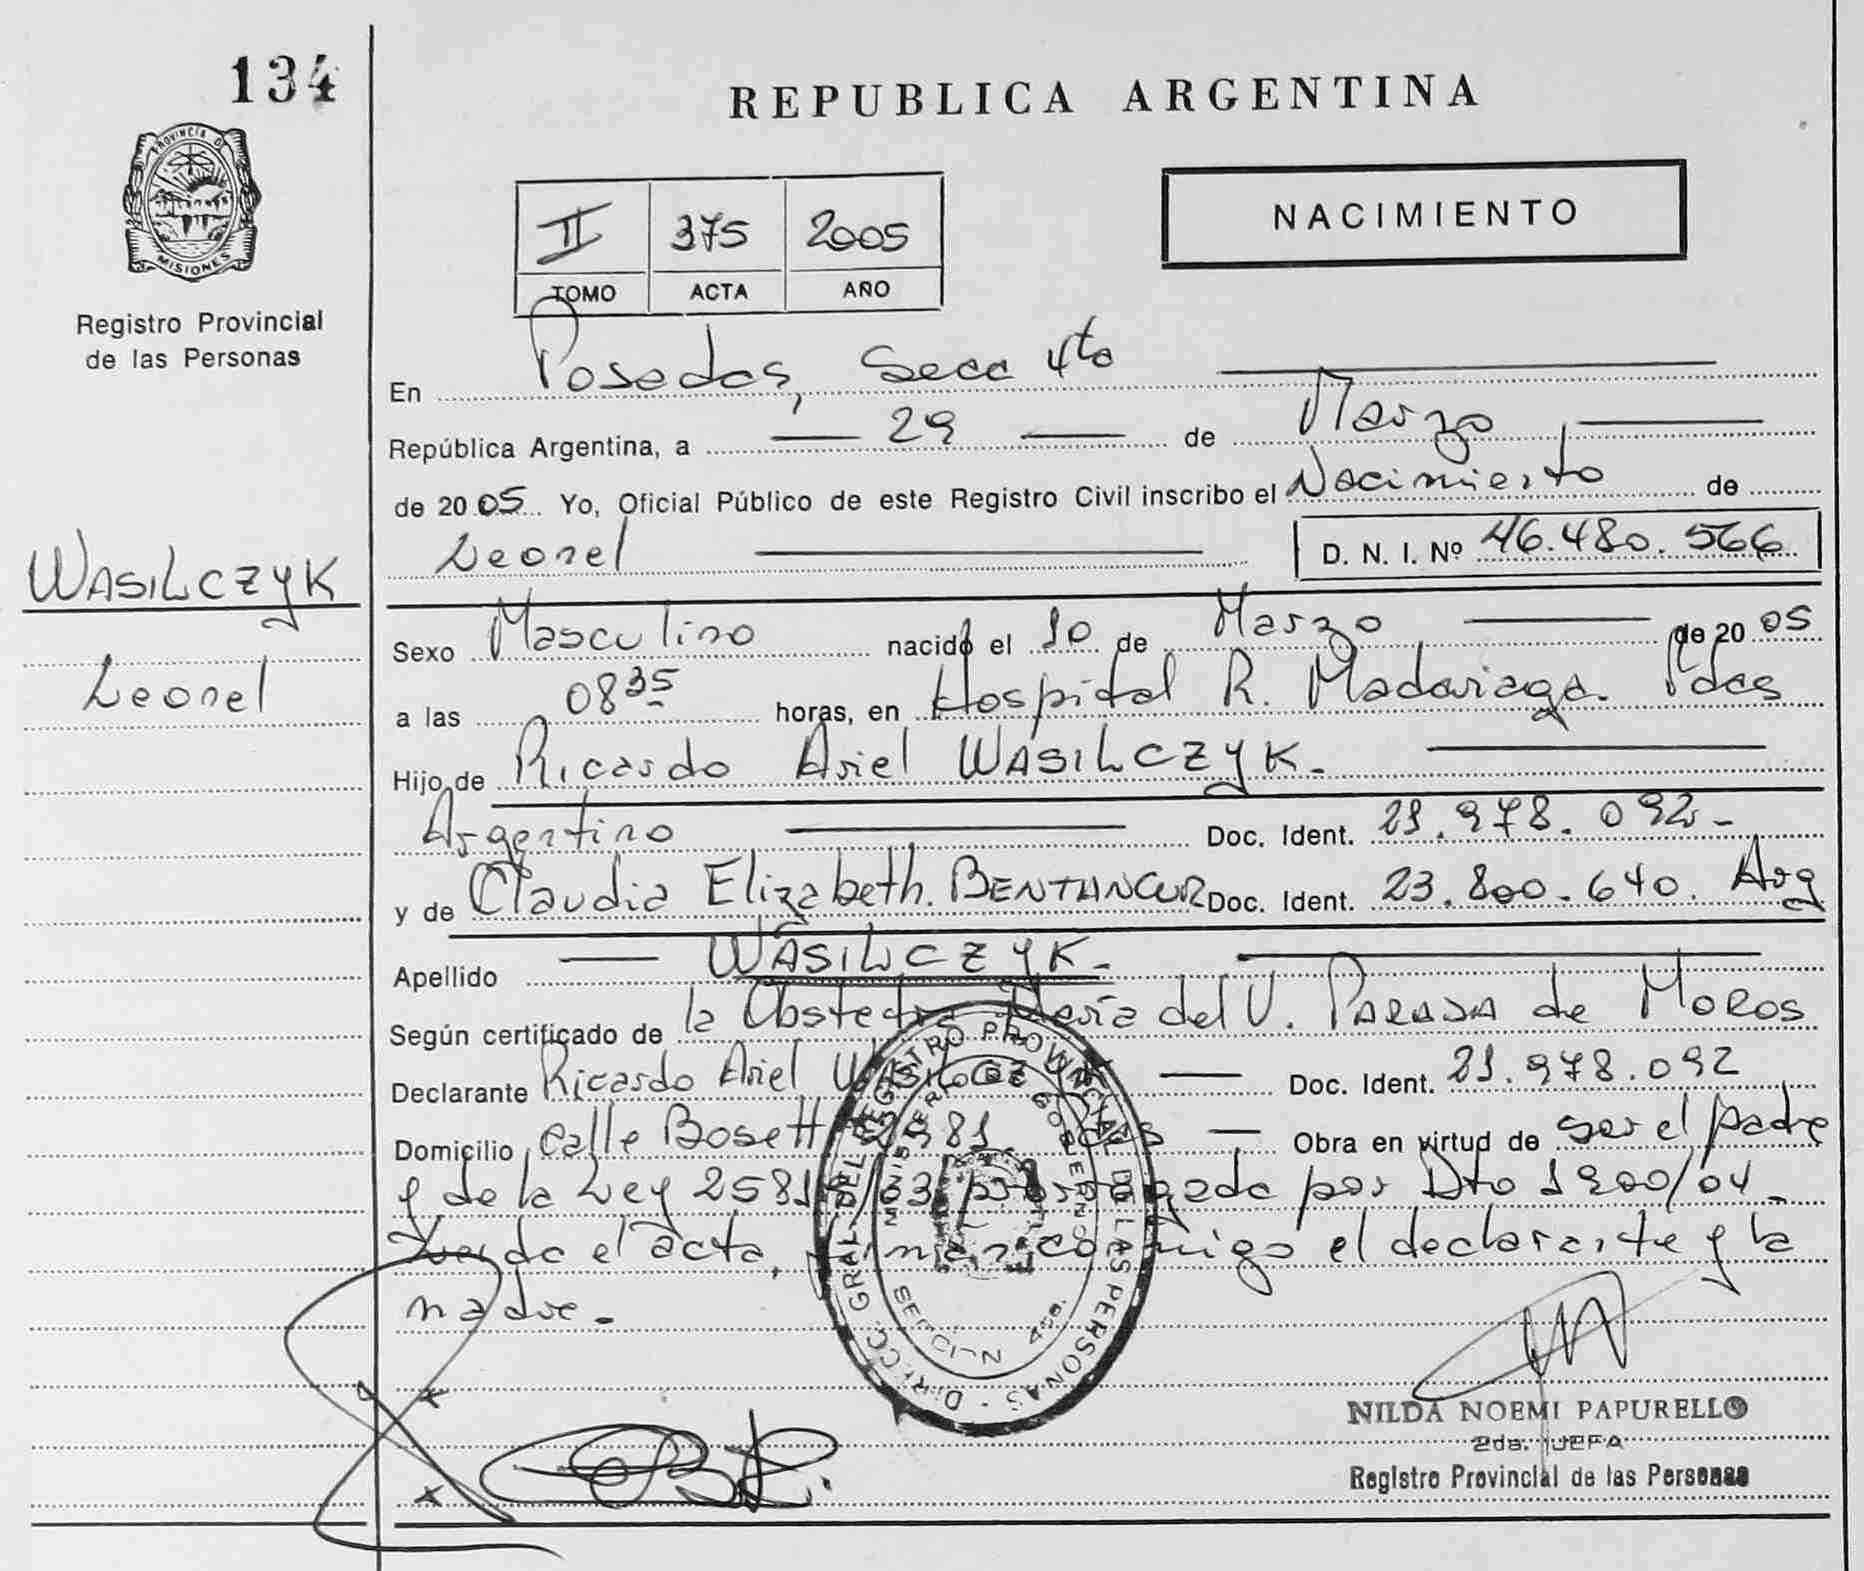 134
REPUBLICA ARGENTINA
PROVINCIA DE
MISIONES
Registro Provincial
de las Personas
II 375 2005
TOMO ACTA AÑO
NACIMIENTO
En Posadas, Secc 4ta
República Argentina, a 29 de Marzo
de 2005 Yo, Oficial Público de este Registro Civil inscribo el Nacimiento de
Leonel D. N. I. Nº 46.480.566
WASILCZYK
Leonel
Sexo Masculino nacido el 10 de Marzo de 2005
a las 08 35 horas, en Hospital R. Madariaga. Pdas
Hijo de Ricardo Ariel WASILCZYK.
Argentino Doc. Ident. 21.978.092-
y de Claudia Elizabeth. BENTANCUR Doc. Ident. 23.800.640. Arg
Apellido WASILCZYK-
Según certificado de la Obstetra María del V. PARADA de MOROS
Declarante Ricardo Ariel WASILCZYK Doc. Ident. 21.978.092
Domicilio calle Bosetti 2981 Pdas Obra en virtud de ser el padre
y de la Ley 25819/03 prorrogada por Dto 1900/04-
Leida el acta, firman conmigo el declarante y la
madre.-
DIRECC. GRAL. DEL REGISTRO PROVINCIAL DE LAS PERSONAS
MINISTERIO DE GOBIERNO
SECCION 4ta.
NILDA NOEMI PAPURELLO
2da. JEFA
Registro Provincial de las Personas